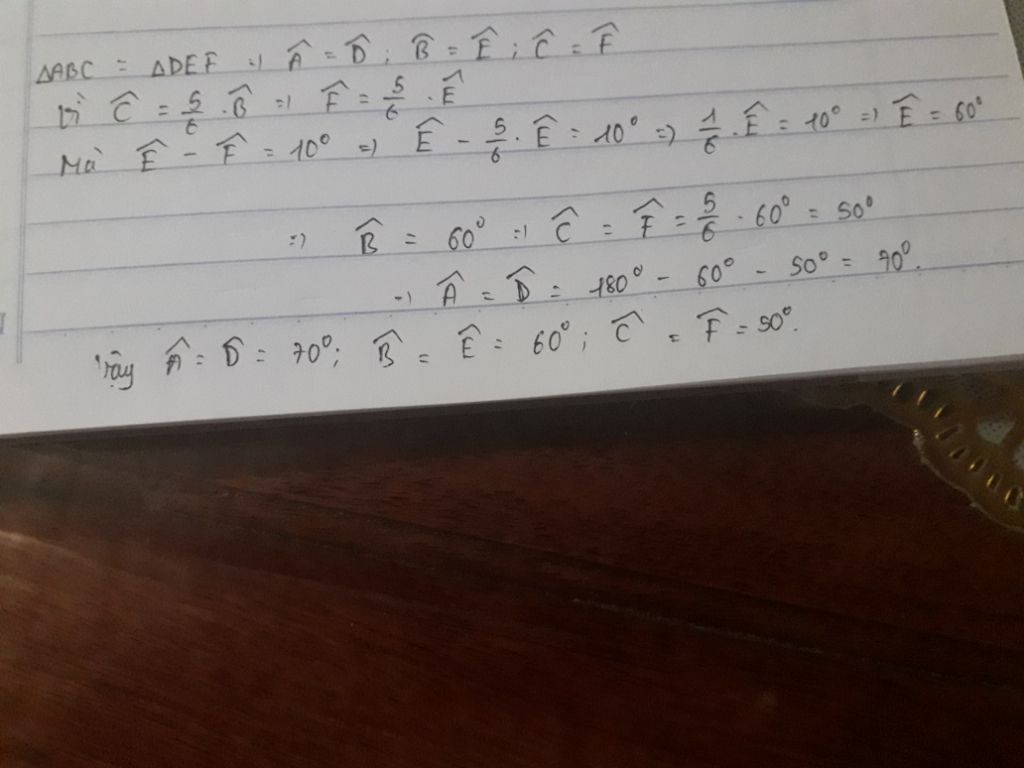 ΔABC = ΔDEF => Â = D̂ ; B̂ = Ê ; Ĉ = F̂
Vì Ĉ = 5/6 . B̂ => F̂ = 5/6 . Ê
Mà Ê - F̂ = 10° => Ê - 5/6 . Ê = 10° => 1/6 . Ê = 10° => Ê = 60°
=> B̂ = 60° => Ĉ = F̂ = 5/6 . 60° = 50°
=> Â = D̂ = 180° - 60° - 50° = 70°.
Vậy Â = D̂ = 70° ; B̂ = Ê = 60° ; Ĉ = F̂ = 50°.